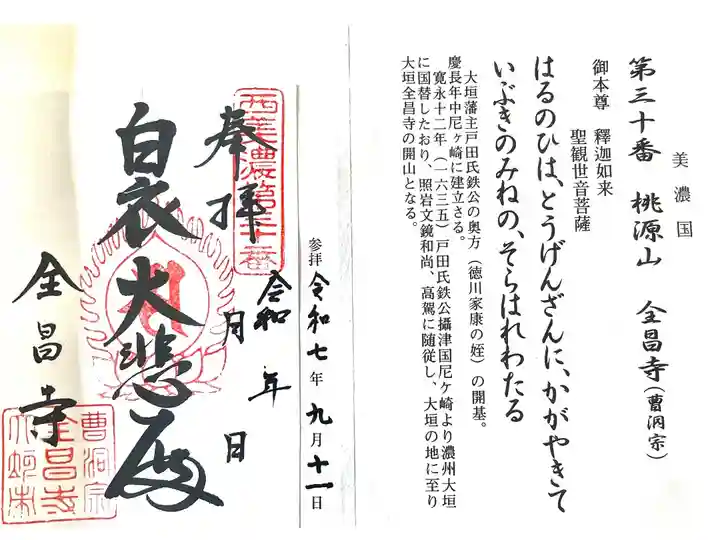 美濃国
第三十番 桃源山 全昌寺(曹洞宗)
御本尊 釋迦如来
聖観世音菩薩
はるのひは、とうげんざんに、かがやきて
いぶきのみねの、そらはれわたる
大垣藩主戸田氏鉄公の奥方(徳川家康の姪)の開基。
慶長年中尼ヶ崎に建立さる。
寛永十二年(一六三五)戸田氏鉄公攝津国尼ケ崎より濃州大垣
に国替したおり、照岩文鏡和尚、高駕に随従し、大垣の地に至り
大垣全昌寺の開山となる。
参拝 令和七年九月十一日
西美濃第三十番
奉拝
令和 年 月 日
白衣大悲殿
全昌寺
曹洞宗
全昌寺